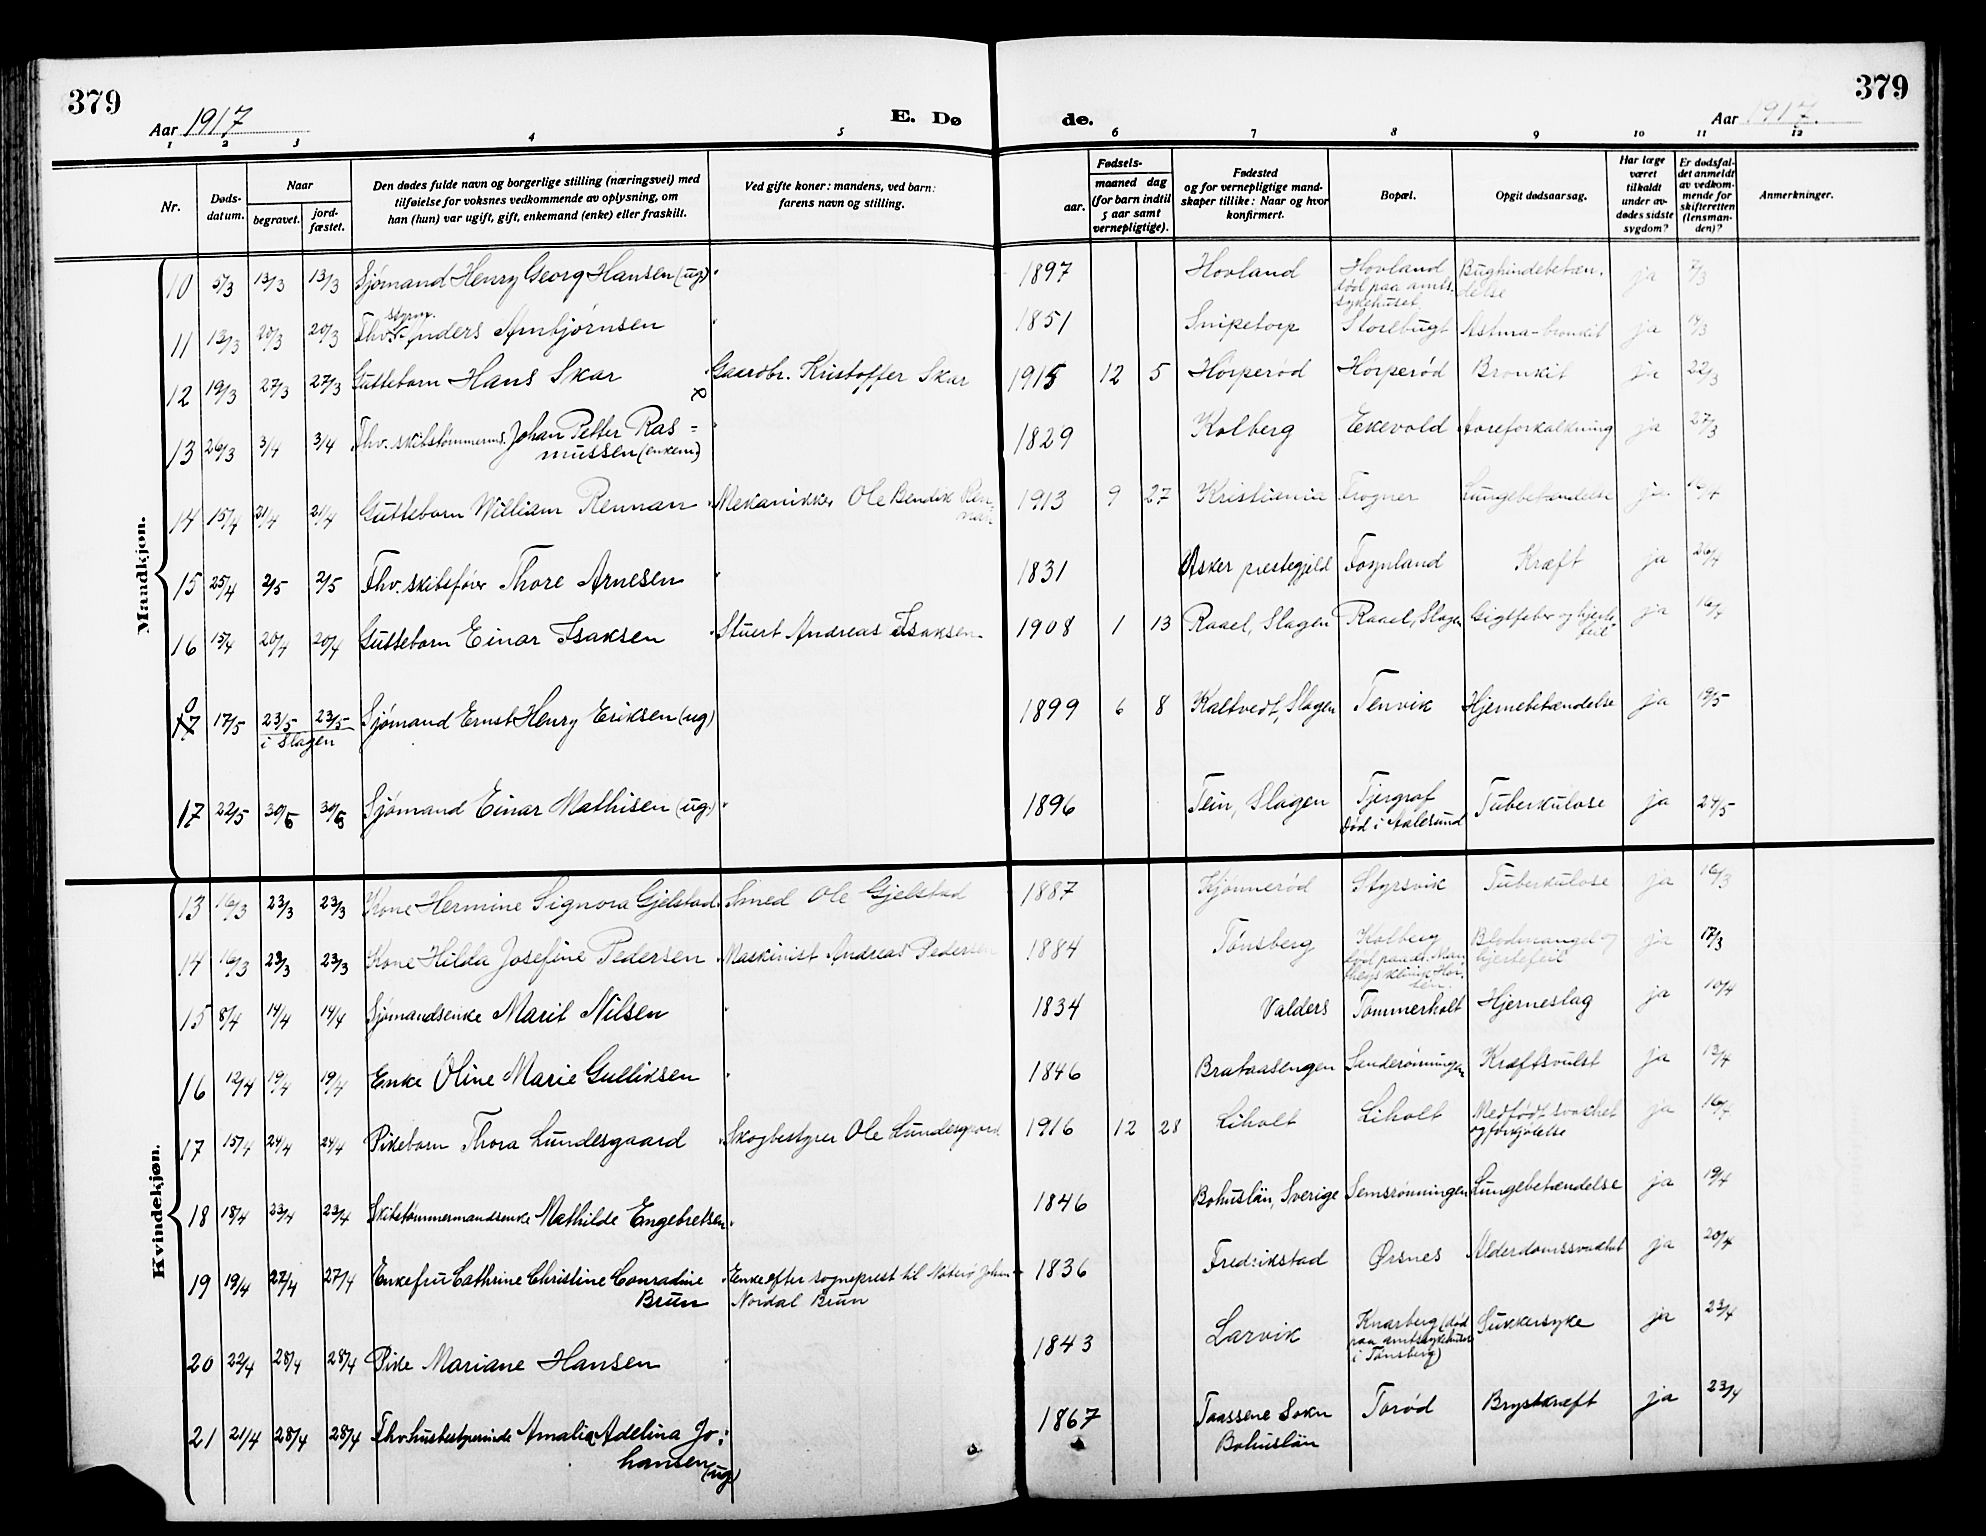 379
379
Aar 1917
E. Dø
de.
Aar 1917.
1 2 3 4 5 6 7 8 9 10 11 12
Nr.
Døds-
datum.
Naar
begravet.
jord-
fæstet.
Den dødes fulde navn og borgerlige stilling (næringsvei) med
tilføielse for voksnes vedkommende av oplysning, om
han (hun) var ugift, gift, enkemand (enke) eller fraskilt.
Ved gifte koner: mandens, ved barn:
farens navn og stilling.
Fødsels-
aar.
maaned dag
(for barn indtil
5 aar samt
vernepligtige).
Fødested
og for vernepligtige mand-
skaper tillike: Naar og hvor
konfirmert.
Bopæl.
Opgit dødsaarsag.
Har læge
været
tilkaldt
under av-
dødes sidste
sygdom?
Er dødsfal-
det anmeldt
av vedkom-
mende for
skifteretten
(lensman-
den)?
Anmerkninger.
Mandkjøn.
10 5/3 13/3 13/3 Sjømand Henry Georg Hansen (ug) " 1897 Hovland Hovland Bughindebetæn- ja 7/3
død paa amts- delse
sykehuset
styrm.
11 12/3 20/3 20/3 Fhv. Anders Arnbjørnsen " 1851 Snipetorp Storebugt Astma-bronkit ja 14/3
12 19/3 27/3 27/3 Guttebarn Hans Skar Gaardbr. Kristoffer Skar 1915 12 5 Horperød Horperød Bronkit ja 22/3
13 26/3 3/4 3/4 Fhv. skibstømmerm. Johan Petter Ras= " 1829 Kolberg Ekevold Aareforkalkning ja 27/3
mussen (enkem)
14 15/4 21/4 21/4 Guttebarn William Rennan Mekaniker Ole Bendik Ren 1913 9 27 Kristiania Frogner Lungebetændelse ja. 16/4
nan
15 25/4 2/5 2/5 Fhv. skibsfører Thore Arnesen " 1831 Asker prestegjeld Fognland Kræft ja 26/4
16 15/4 20/4 20/4 Guttebarn Einar Isaksen Stuert Andreas Isaksen 1908 1 13 Raael, Slagen Raael, Slagen Gigtfeber og hjerte- ja 16/4
feil
0
17 17/5 23/5 23/5 Sjømand Ernst Henry Eriksen (ug) 1899 6 8 Kaltvedt, Slagen Tenvik Hjernebetændelse ja 19/5
i Slagen
17 22/5 30/5 30/5 Sjømand Einar Mathisen (ug.) " 1896 Tein, Slagen Tjergraf Tuberkulose ja 24/5
død i Aalesund
Kvindekjøn.
13 16/3 23/3 23/3 Kone Hermine Signora Gjelstad Smed Ole Gjelstad 1887 Kjønnerød Styrsvik Tuberkulose ja 16/3
14 16/3 23/3 23/3 Kone Hilda Josefine Pedersen Maskinist Andreas Pedersen 1884 Tønsberg Kolberg Blodmangel og ja 17/3
hjertefeil
15 8/4 14/4 14/4 Sjømandsenke Marit Nilsen " 1834 Valders Tømmerholt Hjerneslag ja 10/4
16 12/4 19/4 19/4 Enke Oline Marie Gulliksen " 1846 Brataasengen Sanderønningen Kræftsvulst ja 13/4
17 15/4 24/4 24/4 Pikebarn Thora Lundesgaard Skogbestyrer Ole Lundesgaard 1916 12 28 Liholt Liholt Medfødt svakhet ja 16/4
og forkjølelse
18 18/4 23/4 23/4 Skibstømmermandsenke Mathilde Engebretsen " 1846 Bohuslän, Sverige Semsrønningen Lungebetændelse ja 19/4
19 19/4 27/4 27/4 Enkefru Cathrine Christine Conradine Enke efter sogneprest til Nøterø Johan 1836 Fredrikstad Ørsnes Alderdomssvakhet ja 20/4
Brun Nordal Brun
20 22/4 28/4 28/4 Pike Mariane Hansen " 1843 Larvik Knarberg (død Sukkersyke ja 23/4
paa amtssykehuset
i Tønsberg)
21 21/4 28/4 28/4 Fhv. husbestyrerinde Amalia Adelina Jo= 1867 Taassene Sokn Torød Brystkræft ja 23/4
hansen (ug) Bohuslän